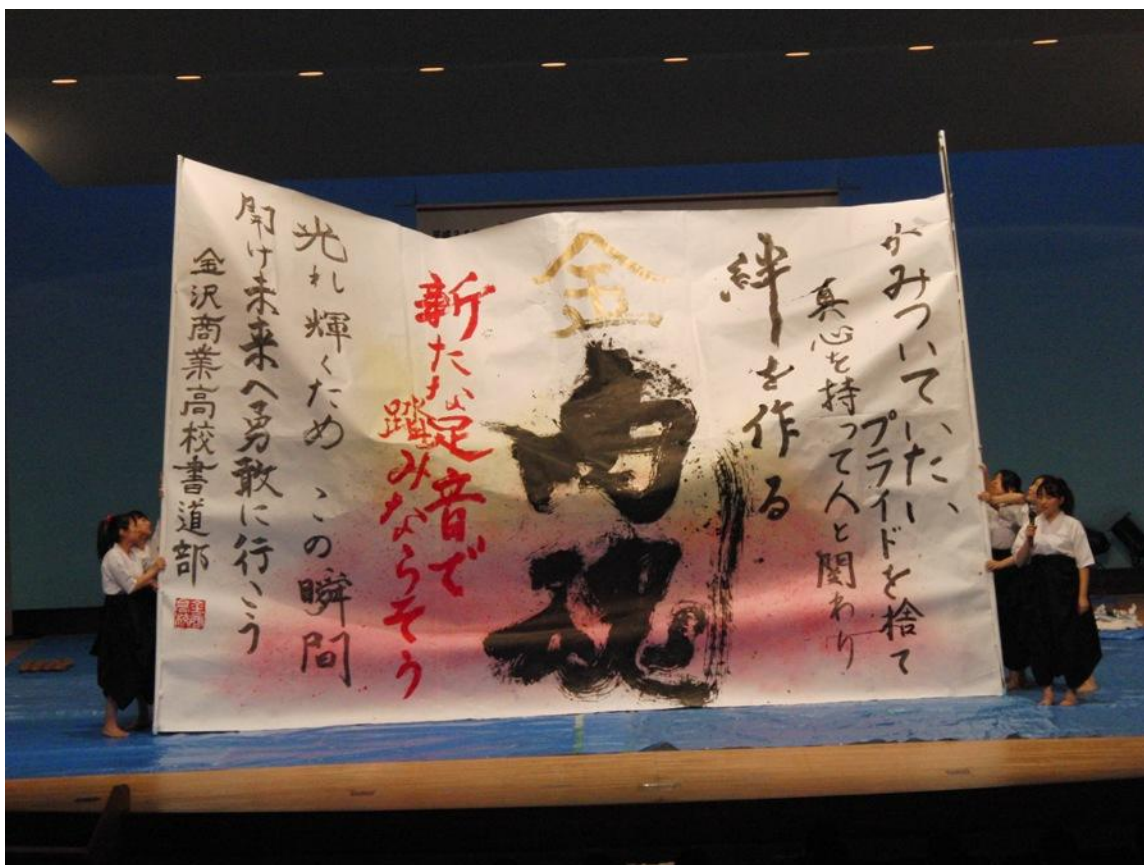 がみついていたい、
プライドを捨て
真心を持って人と関わり
絆を作る
金商魂
新たな足音で
踏みならそう
光れ輝くため この瞬間
開け未来へ勇敢に行こう
金沢商業高校書道部